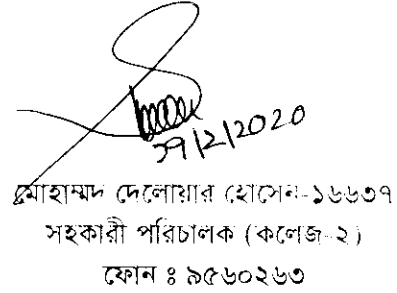 ২৭/2/2020
মোহাম্মদ দেলোয়ার হোসেন-১৬৬৩৭
সহকারী পরিচালক (কলেজ-২)
ফোন ঃ ৯৫৬০২৬৩